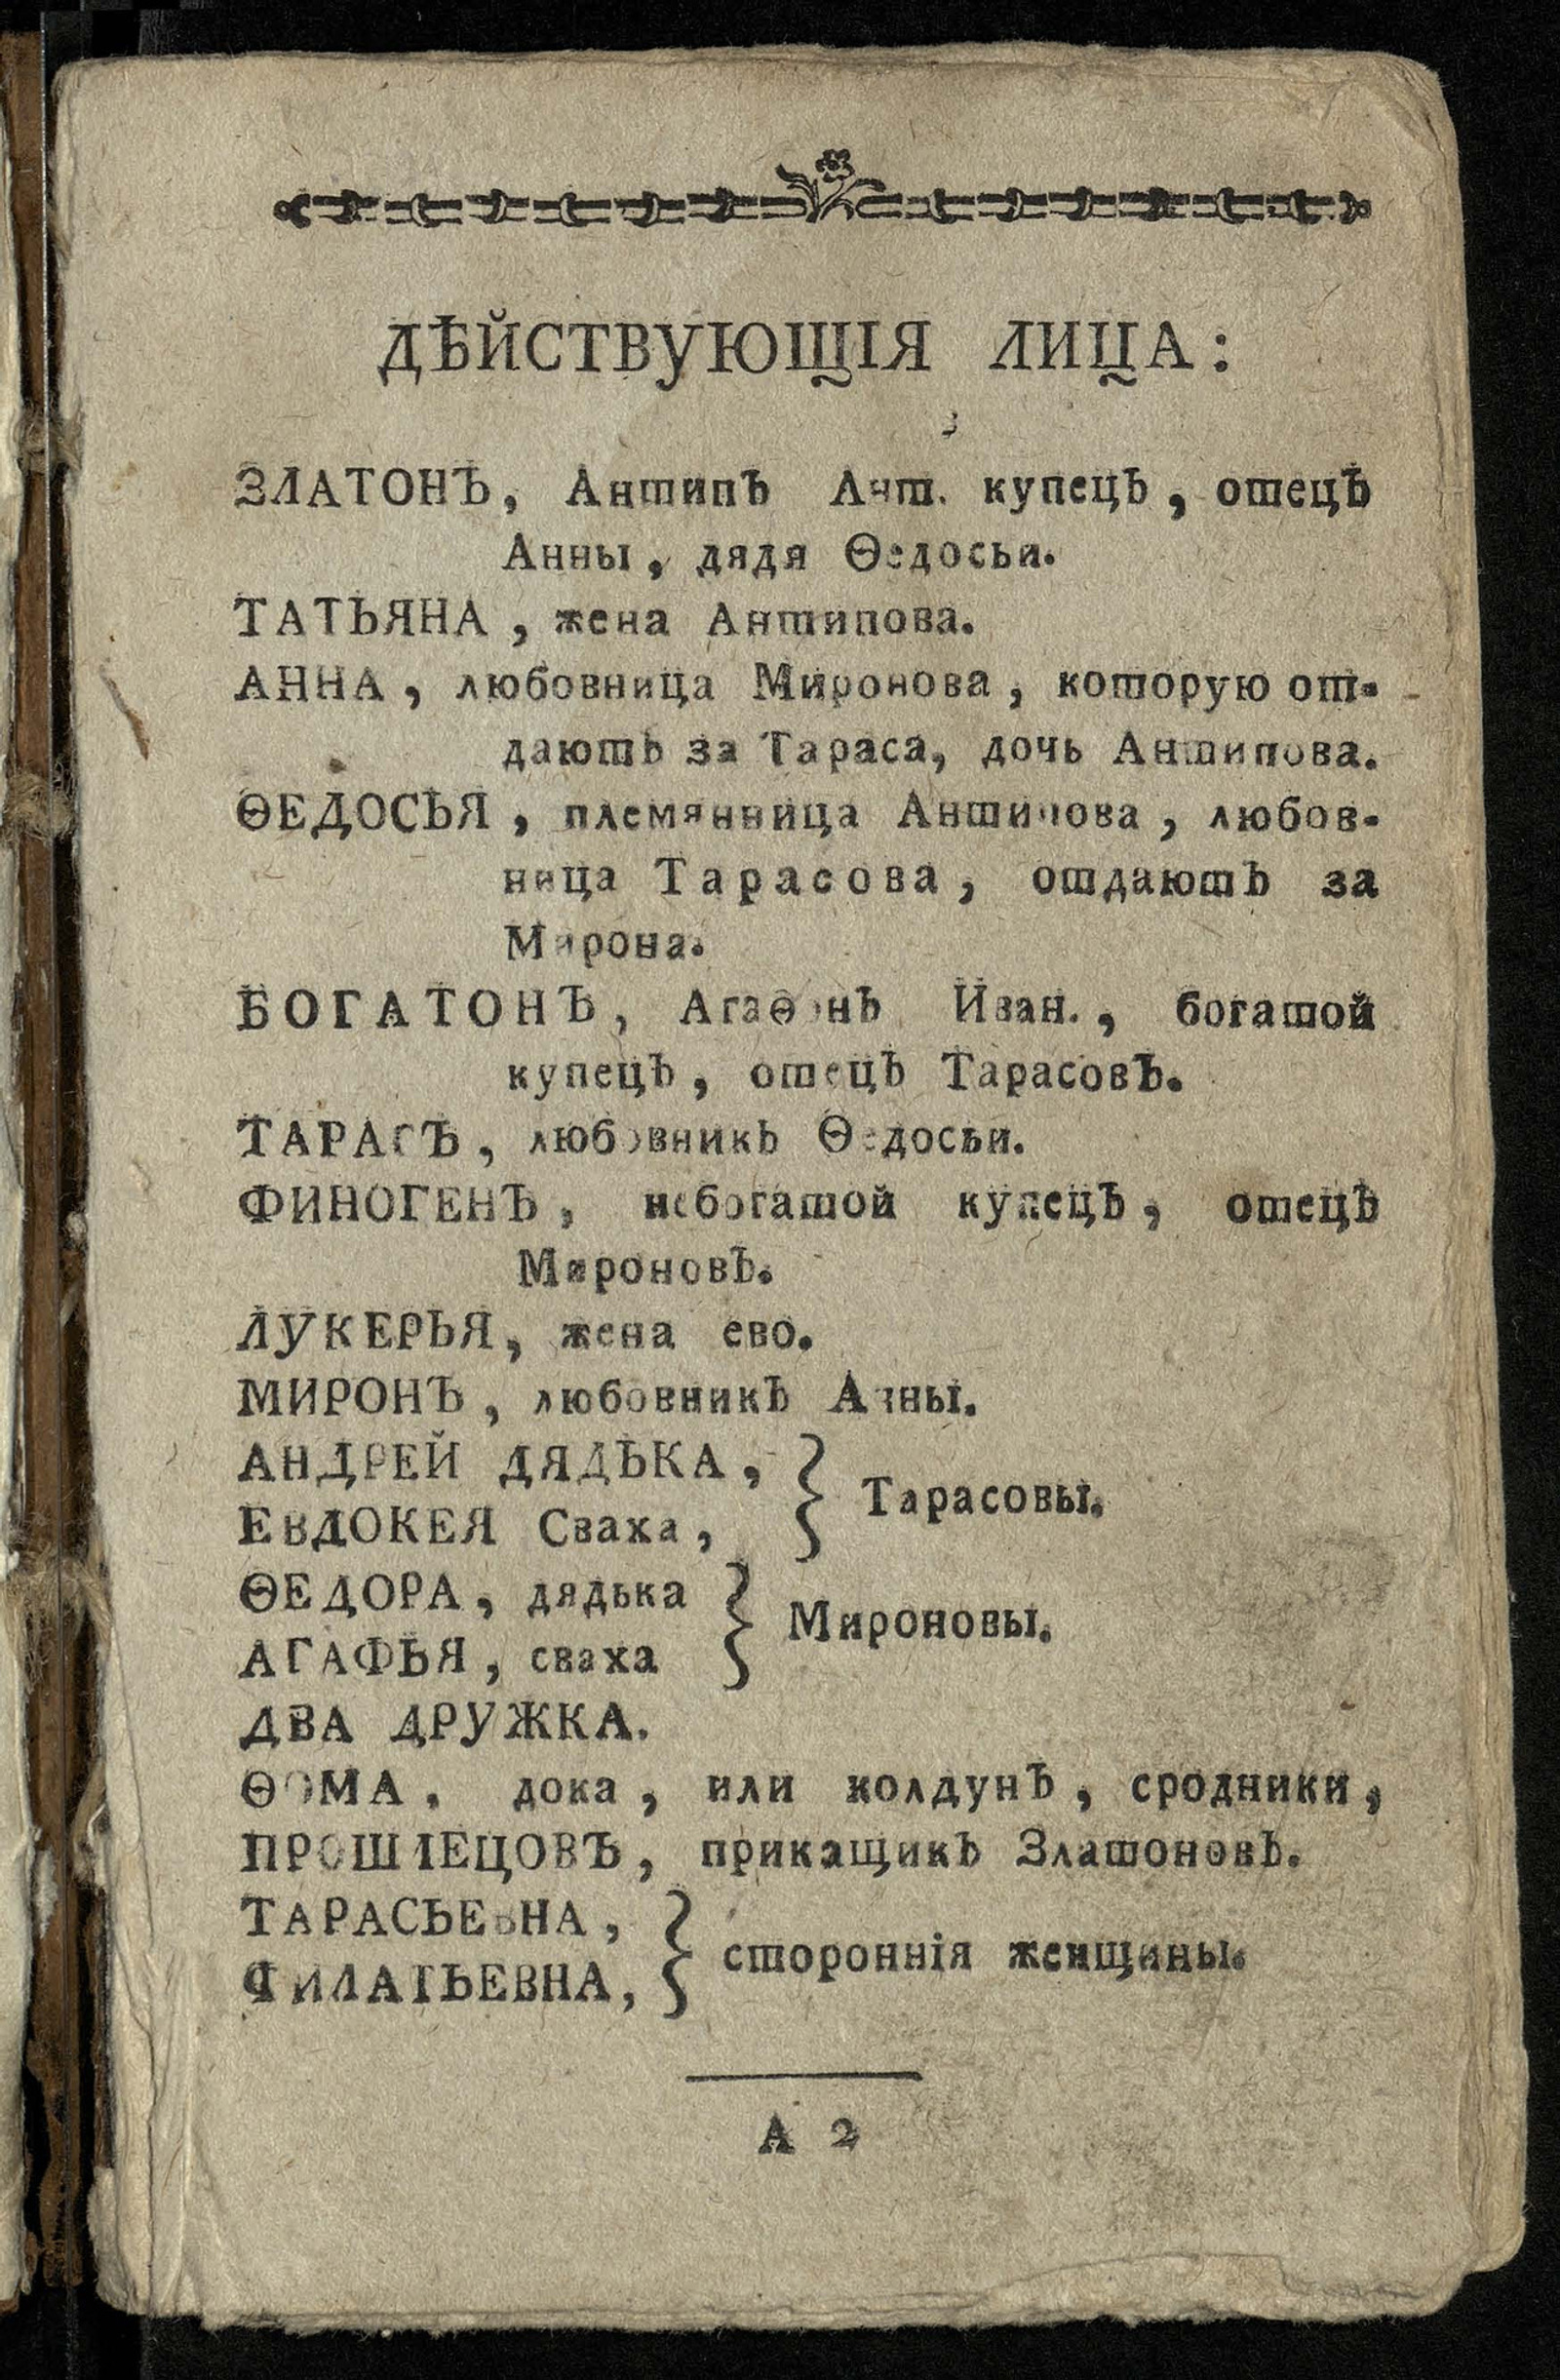 ДѢЙСТВУЮЩІЯ ЛИЦА:
ЗЛАТОНЪ, Антипъ Ант. купецъ, отецъ
Анны, дядя Ѳедосьи.
ТАТЬЯНА, жена Антипова.
АННА, любовница Миронова, которую от-
даютъ за Тараса, дочь Антипова.
ѲЕДОСЬЯ, племянница Антипова, любов-
ница Тарасова, отдаютъ за
Мирона.
БОГАТОНЪ, Агаѳонъ Иван., богатой
купецъ, отецъ Тарасовъ.
ТАРАСЪ, любовникъ Ѳедосьи.
ФИНОГЕНЪ, небогатой купецъ, отецъ
Мироновъ.
ЛУКЕРЬЯ, жена ево.
МИРОНЪ, любовникъ Анны.
АНДРЕЙ ДЯДЬКА,
ЕВДОКЕЯ Сваха,
} Тарасовы.
ѲЕДОРА, дядька
АГАФЬЯ, сваха
} Мироновы.
ДВА ДРУЖКА.
ѲОМА, дока, или колдунъ, сродники,
ПРОШЛЕЦОВЪ, прикащикъ Златоновъ.
ТАРАСЬЕВНА,
ФИЛАТЬЕВНА,
} стороннія женщины.
А 2